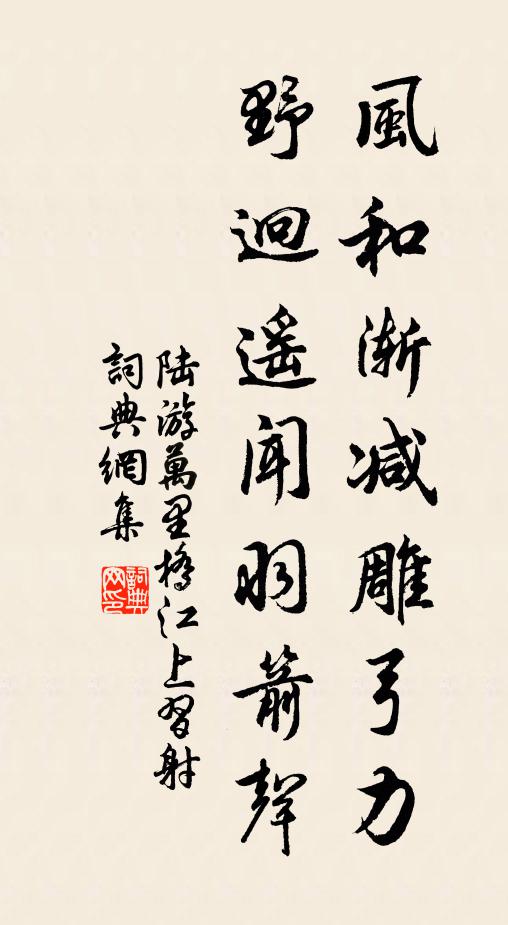 風和漸減雕弓力
野迥遥聞羽箭聲
陆游萬里橋江上習射
詞典網集
詞典網印